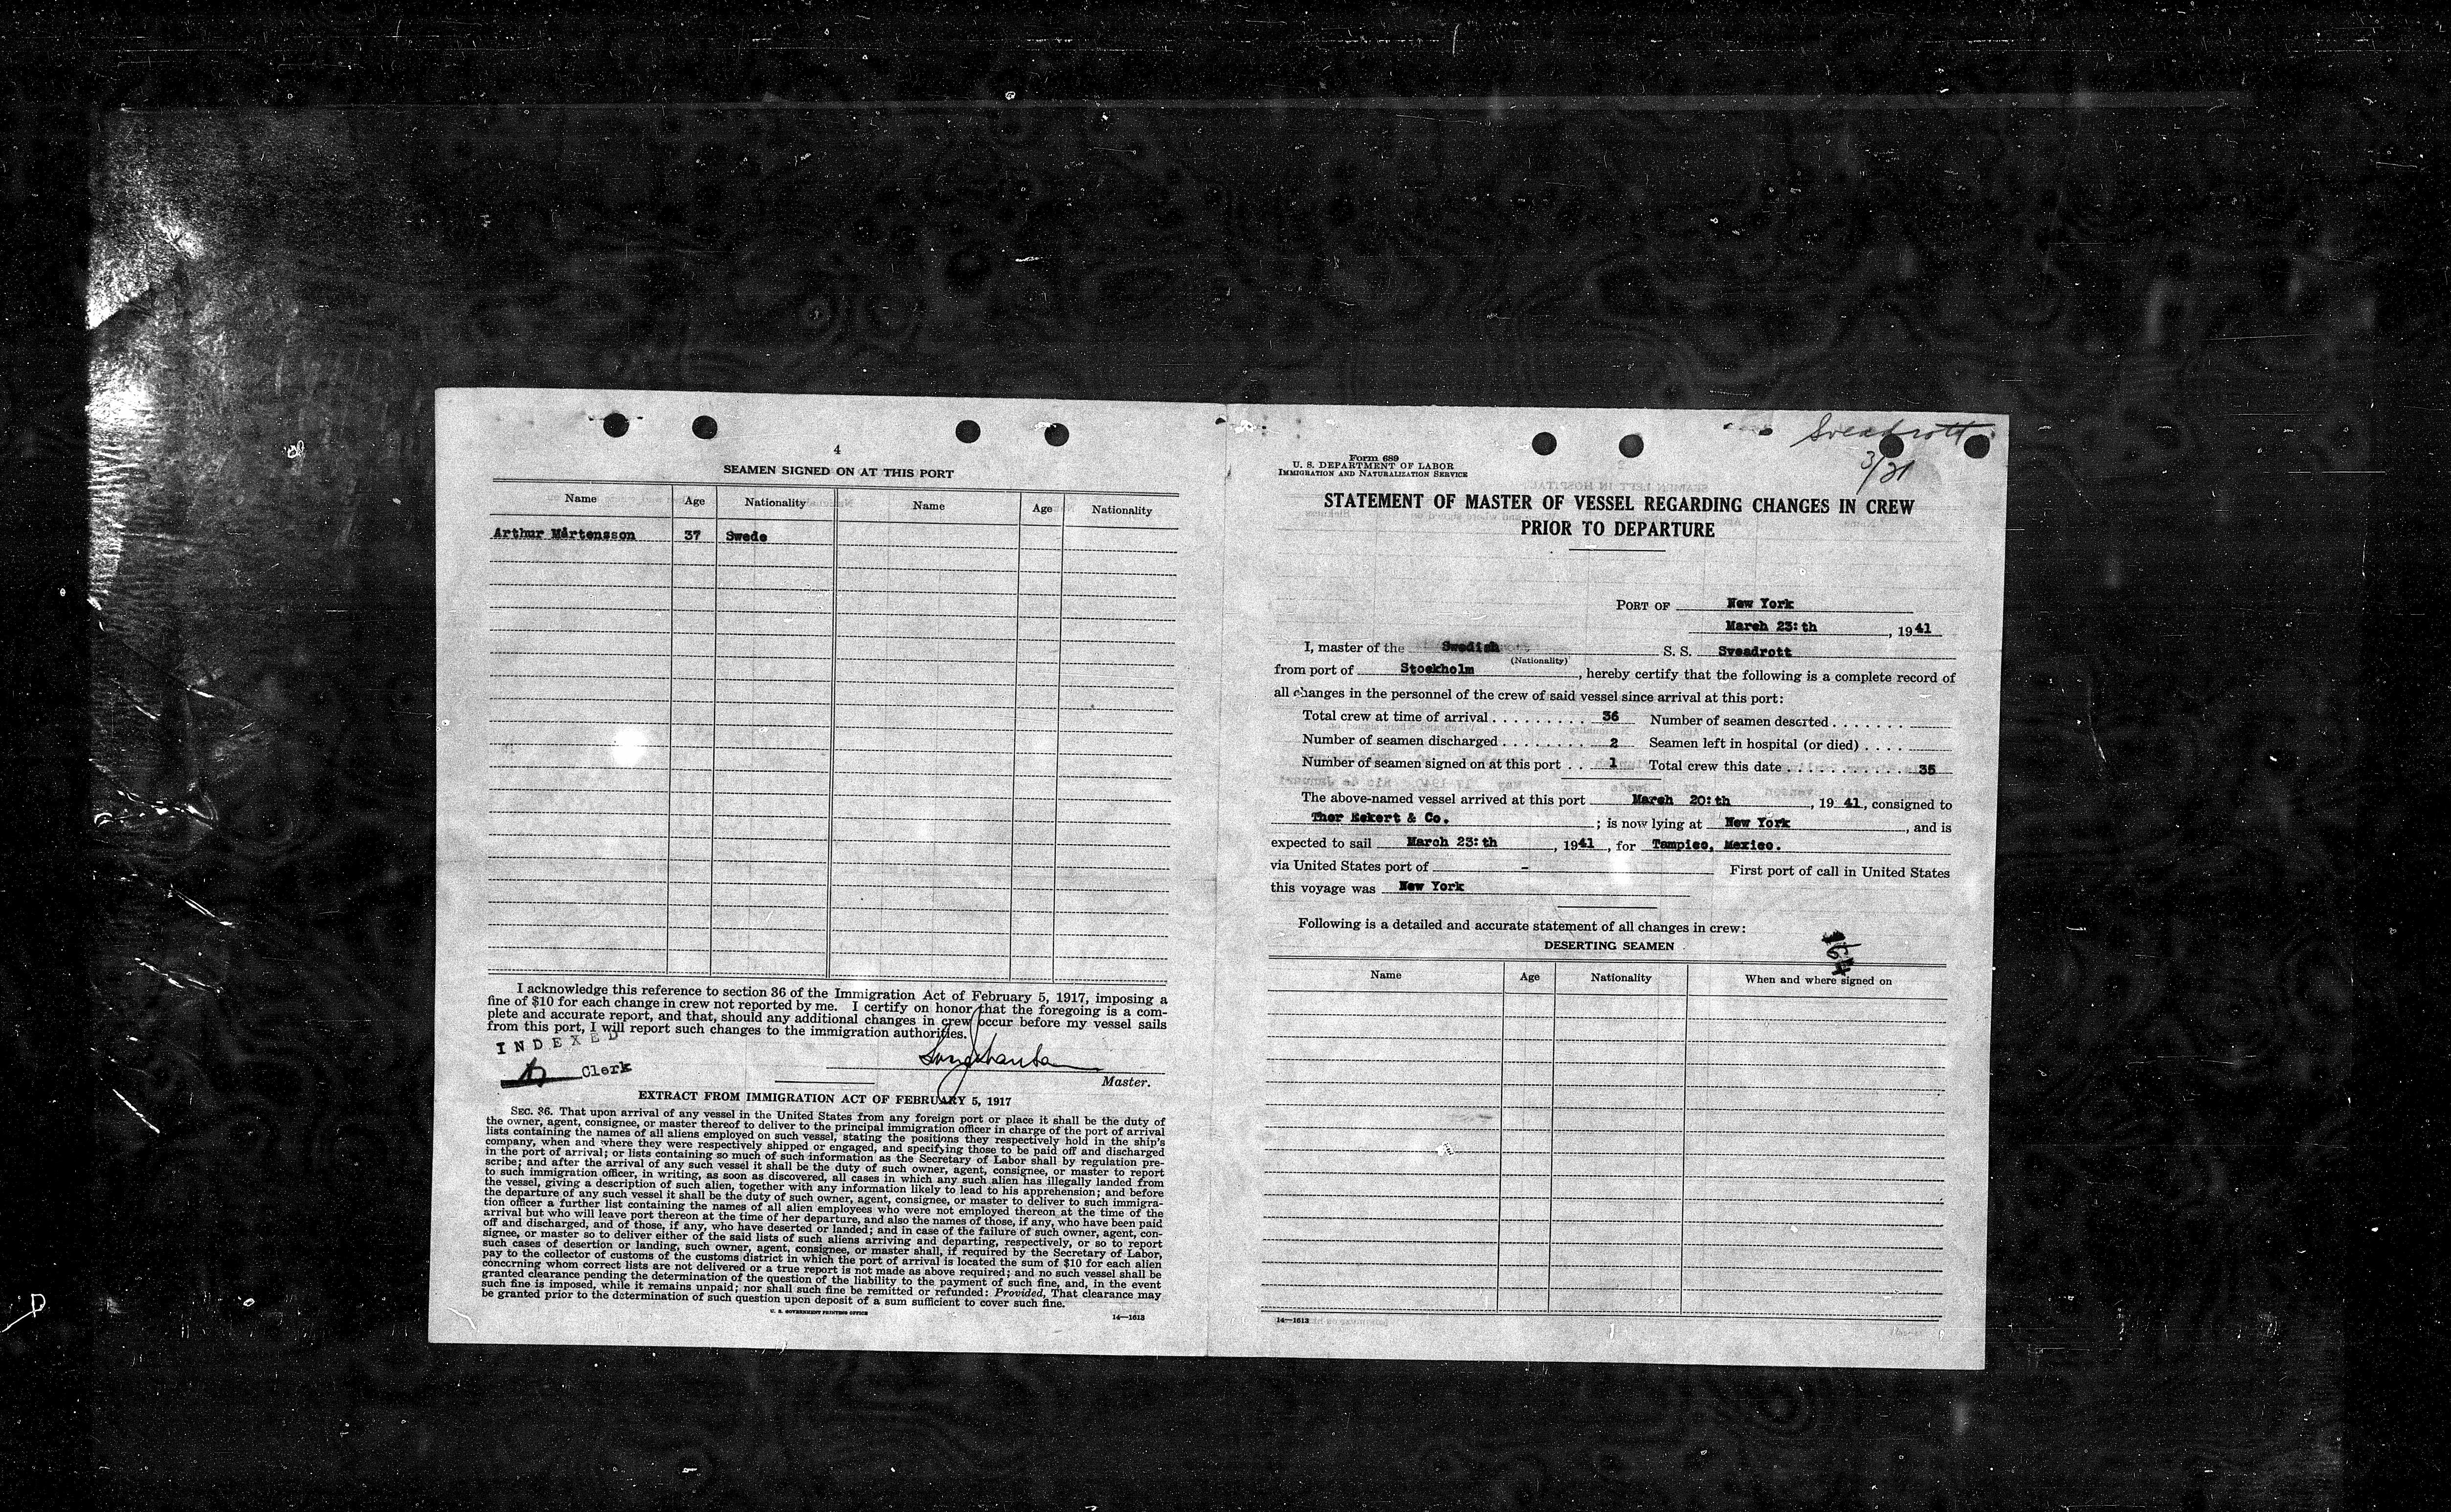 4
SEAMEN SIGNED ON AT THIS PORT
Name Age Nationality Name Age Nationality
Arthur Mårtensson 37 Swede
I acknowledge this reference to section 36 of the Immigration Act of February 5, 1917, imposing a
fine of $10 for each change in crew not reported by me. I certify on honor that the foregoing is a com-
plete and accurate report, and that, should any additional changes in crew occur before my vessel sails
from this port, I will report such changes to the immigration authorities.
INDEXED
Clerk
Master.
EXTRACT FROM IMMIGRATION ACT OF FEBRUARY 5, 1917
SEC. 36. That upon arrival of any vessel in the United States from any foreign port or place it shall be the duty of
the owner, agent, consignee, or master thereof to deliver to the principal immigration officer in charge of the port of arrival
lists containing the names of all aliens employed on such vessel, stating the positions they respectively hold in the ship's
company, when and where they were respectively shipped or engaged, and specifying those to be paid off and discharged
in the port of arrival; or lists containing so much of such information as the Secretary of Labor shall by regulation pre-
scribe; and after the arrival of any such vessel it shall be the duty of such owner, agent, consignee, or master to report
to such immigration officer, in writing, as soon as discovered, all cases in which any such alien has illegally landed from
the vessel, giving a description of such alien, together with any information likely to lead to his apprehension; and before
the departure of any such vessel it shall be the duty of such owner, agent, consignee, or master to deliver to such immigra-
tion officer a further list containing the names of all alien employees who were not employed thereon at the time of the
arrival but who will leave port thereon at the time of her departure, and also the names of those, if any, who have been paid
off and discharged, and of those, if any, who have deserted or landed; and in case of the failure of such owner, agent, con-
signee, or master so to deliver either of the said lists of such aliens arriving and departing, respectively, or so to report
such cases of desertion or landing, such owner, agent, consignee, or master shall, if required by the Secretary of Labor,
pay to the collector of customs of the customs district in which the port of arrival is located the sum of $10 for each alien
concerning whom correct lists are not delivered or a true report is not made as above required; and no such vessel shall be
granted clearance pending the determination of the question of the liability to the payment of such fine, and, in the event
such fine is imposed, while it remains unpaid; nor shall such fine be remitted or refunded: Provided, That clearance may
be granted prior to the determination of such question upon deposit of a sum sufficient to cover such fine.
U. S. GOVERNMENT PRINTING OFFICE
14—1613
Sveadrott
3/21
Form 689
U. S. DEPARTMENT OF LABOR
IMMIGRATION AND NATURALIZATION SERVICE
STATEMENT OF MASTER OF VESSEL REGARDING CHANGES IN CREW
PRIOR TO DEPARTURE
PORT OF New York
March 23:th, 1941
I, master of the Swedish S. S. Sveadrott
(Nationality)
from port of Stockholm, hereby certify that the following is a complete record of
all changes in the personnel of the crew of said vessel since arrival at this port:
Total crew at time of arrival . . . . . . . . . 36 Number of seamen deserted . . . . . . .
Number of seamen discharged . . . . . . . . 2 Seamen left in hospital (or died) . . . .
Number of seamen signed on at this port . . 1 Total crew this date . . . . . . . . . . . 35
The above-named vessel arrived at this port March 20:th, 19 41, consigned to
Thor Eckert & Co. ; is now lying at New York, and is
expected to sail March 23:th, 1941, for Tampico, Mexico.
via United States port of - First port of call in United States
this voyage was New York
Following is a detailed and accurate statement of all changes in crew:
DESERTING SEAMEN
Name Age Nationality When and where signed on
14—1613